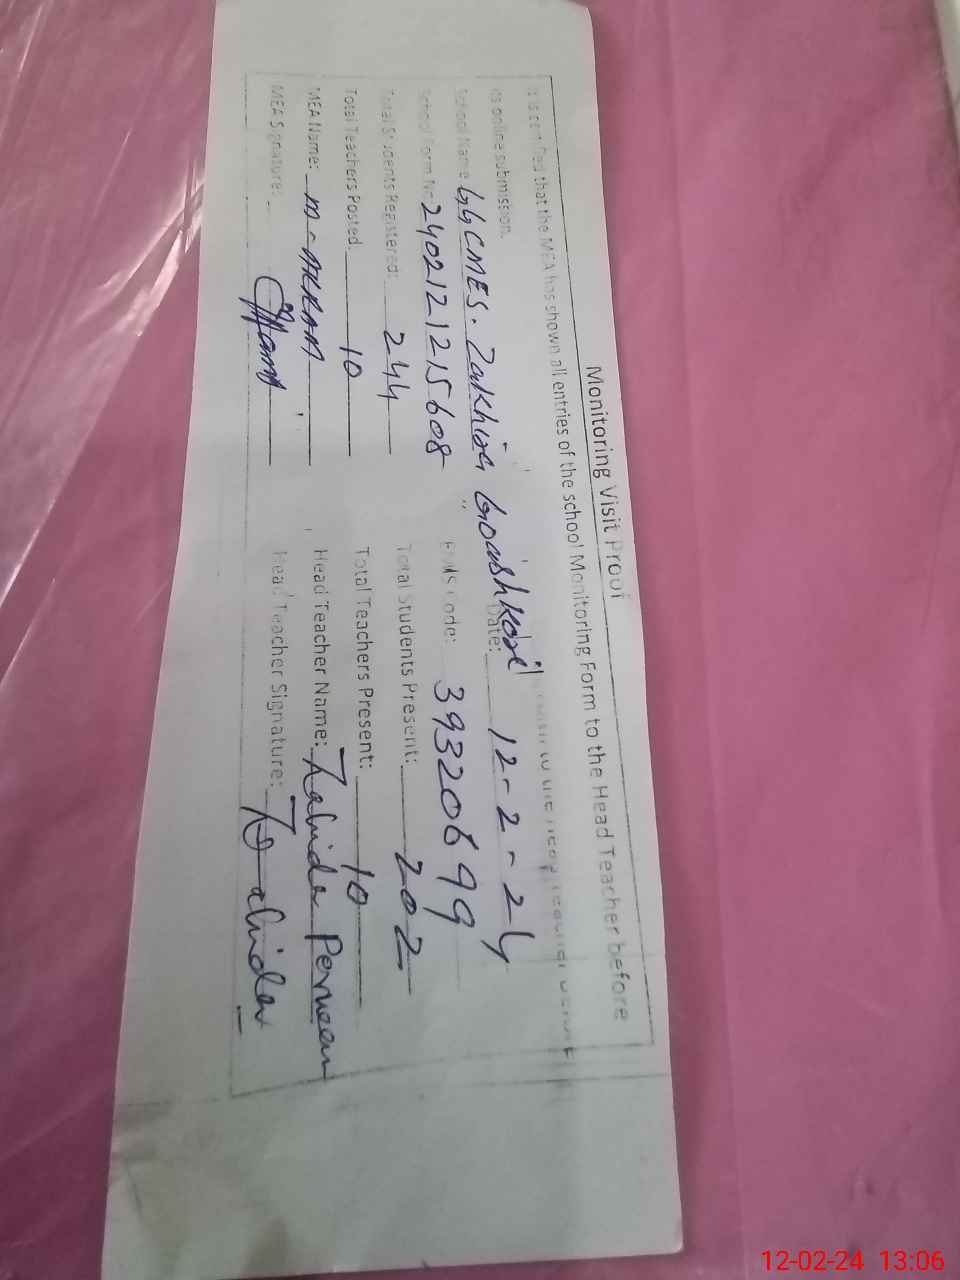 Monitoring Visit Proof
It is certified that the MEA has shown all entries of the school Monitoring Form to the Head Teacher before
its online submission. Date: 12-2-24
School Name GGCMES. Zakhira Goaishkori
School Form No 240212121215608 EMIS Code: 39320699
Total Students Registered: 244 Total Students Present: 202
Total Teachers Posted: 10 Total Teachers Present: 10
MEA Name: M-AKRAM Head Teacher Name: Zahida Perveen
MEA Signature: Head Teacher Signature: Zahida
12-02-24 13:06